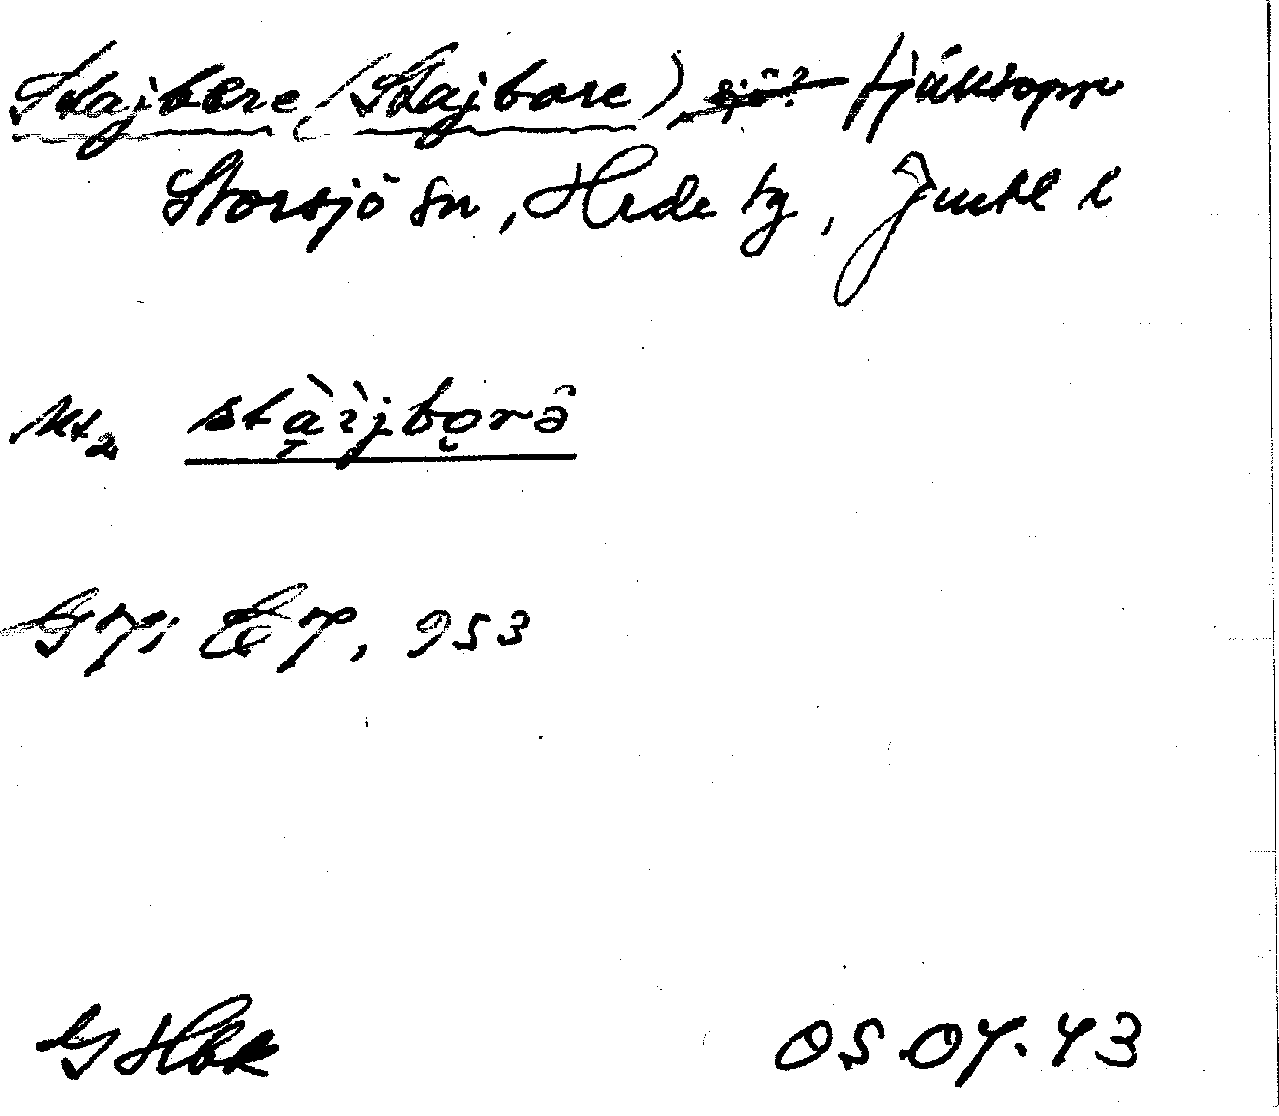 Stajbere (Stajbore), sjö? fjälltopp
Storsjö sn, Hede tg, Jmtl l
Ut₂ sta̱ìjbo̜rə̂
G7i E7, 953
G Hbk 05.07.43